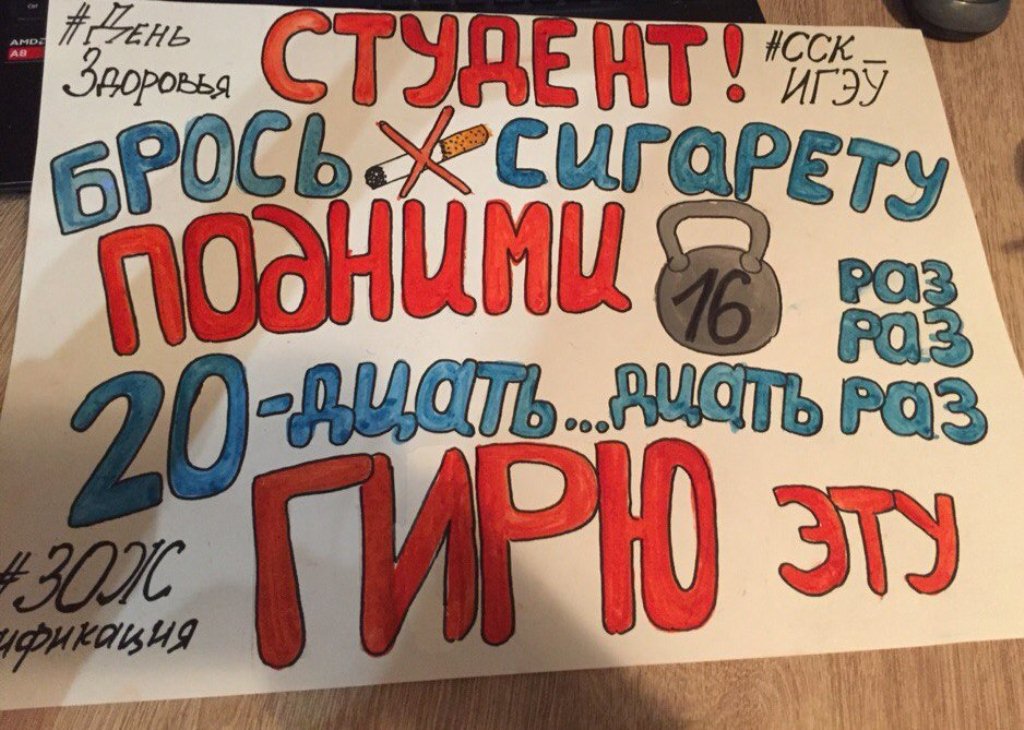 #День
Здоровья
СТУДЕНТ!
#ССК_
ИГЭУ
БРОСЬ СИГАРЕТУ
ПОДНИМИ 16 раз
раз
20-дцать...дцать раз
ГИРЮ ЭТУ
#ЗОЖ
ификация
AMD
A8